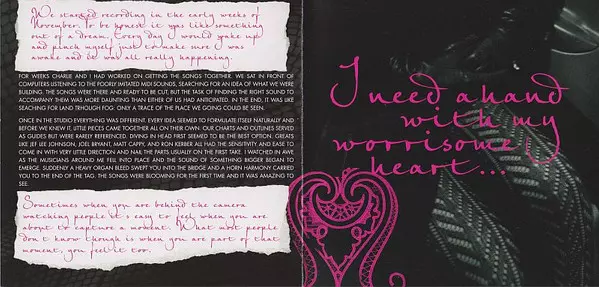 We started recording in the early weeks of
November. To be honest it was like something
out of a dream. Every day I would wake up
and pinch myself just to make sure I was
awake and it was all really happening.
FOR WEEKS CHARLIE AND I HAD WORKED ON GETTING THE SONGS TOGETHER. WE SAT IN FRONT OF
COMPUTERS LISTENING TO THE POORLY IMITATED MIDI SOUNDS, SEARCHING FOR AN IDEA OF WHAT WE WERE
BUILDING. THE SONGS WERE THERE AND READY TO BE CUT, BUT THE TASK OF FINDING THE RIGHT SOUND TO
ACCOMPANY THEM WAS MORE DAUNTING THAN EITHER OF US HAD ANTICIPATED. IN THE END, IT WAS LIKE
SEARCHING FOR LAND THROUGH FOG. ONLY A TRACE OF THE PLACE WE GOING COULD BE SEEN.
ONCE IN THE STUDIO EVERYTHING WAS DIFFERENT. EVERY IDEA SEEMED TO FORMULATE ITSELF NATURALLY AND
BEFORE WE KNEW IT, LITTLE PIECES CAME TOGETHER ALL ON THEIR OWN. OUR CHARTS AND OUTLINES SERVED
AS GUIDES BUT WERE RARELY REFERENCED. DIVING IN HEAD FIRST SEEMED TO BE THE BEST OPTION. GREATS
LIKE JEF LEE JOHNSON, JOEL BRYANT, MATT CAPPY, AND RON KERBER ALL HAD THE SENSITIVITY AND EASE TO
COME IN WITH VERY LITTLE DIRECTION AND NAIL THE PARTS USUALLY ON THE FIRST TAKE. I WATCHED IN AWE
AS THE MUSICIANS AROUND ME FELL INTO PLACE AND THE SOUND OF SOMETHING BIGGER BEGAN TO
EMERGE. SUDDENLY A HEAVY ORGAN BLEED SWEPT YOU INTO THE BRIDGE AND A HORN HARMONY CARRIED
YOU TO THE END OF THE TAG. THE SONGS WERE BLOOMING FOR THE FIRST TIME AND IT WAS AMAZING TO
SEE.
Sometimes when you are behind the camera
watching people it's easy to feel when you are
about to capture a moment. What most people
don't know though is when you are part of that
moment, you feel it too.
I need a hand
with my
worrisome
heart...